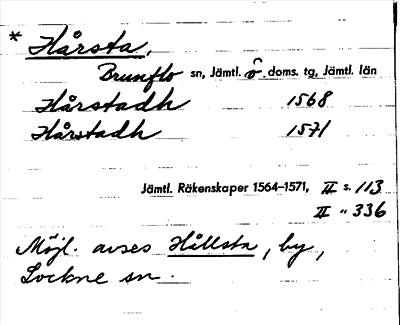 * Hårsta,
Brunflo sn, Jämtl. ö. doms. tg, Jämtl. län
Hårstadh 1568
Hårstadh 1571
Jämtl. Räkenskaper 1564–1571, II s. 113
II „ 336
Möjl. avses Hållsta, by,
Lockne sn.